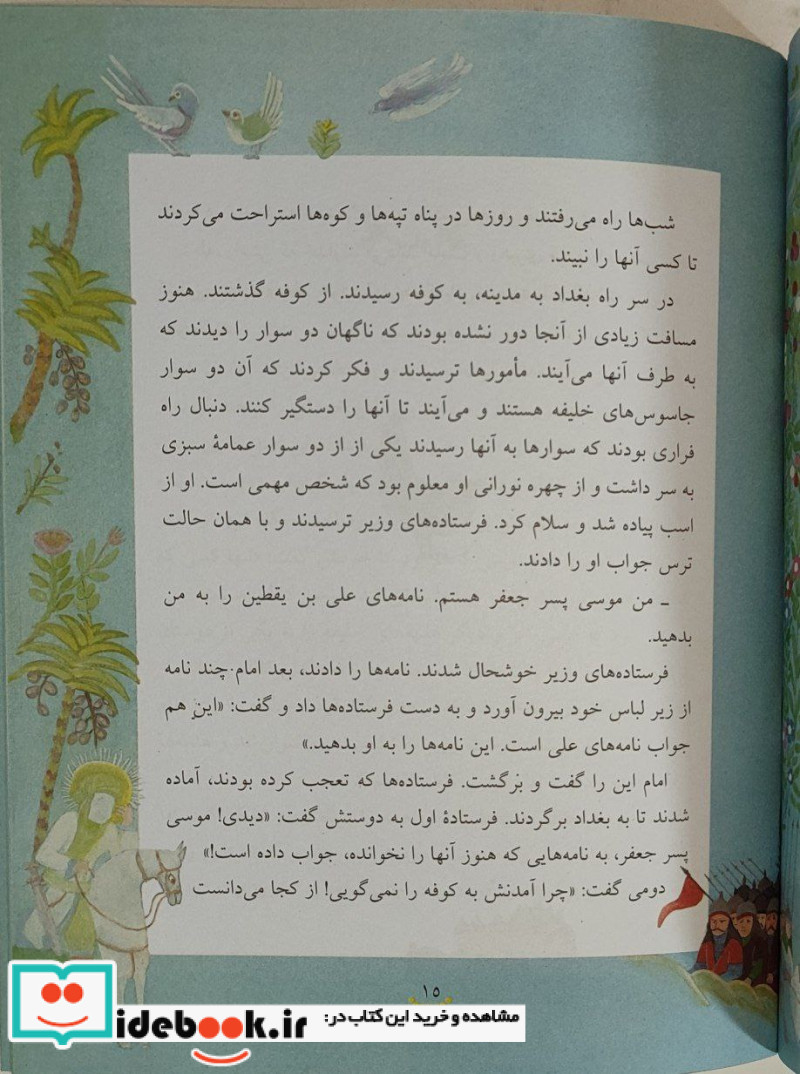 شب‌ها راه می‌رفتند و روزها در پناه تپه‌ها و کوه‌ها استراحت می‌کردند
تا کسی آنها را نبیند.
در سر راه بغداد به مدینه، به کوفه رسیدند. از کوفه گذشتند. هنوز
مسافت زیادی از آنجا دور نشده بودند که ناگهان دو سوار را دیدند که
به طرف آنها می‌آیند. مأمورها ترسیدند و فکر کردند که آن دو سوار
جاسوس‌های خلیفه هستند و می‌آیند تا آنها را دستگیر کنند. دنبال راه
فراری بودند که سوارها به آنها رسیدند یکی از از دو سوار عمامهٔ سبزی
به سر داشت و از چهره نورانی او معلوم بود که شخص مهمی است. او از
اسب پیاده شد و سلام کرد. فرستاده‌های وزیر ترسیدند و با همان حالت
ترس جواب او را دادند.
ـ من موسی پسر جعفر هستم. نامه‌های علی بن یقطین را به من
بدهید.
فرستاده‌های وزیر خوشحال شدند. نامه‌ها را دادند، بعد امام چند نامه
از زیر لباس خود بیرون آورد و به دست فرستاده‌ها داد و گفت: «این هم
جواب نامه‌های علی است. این نامه‌ها را به او بدهید.»
امام این را گفت و برگشت. فرستاده‌ها که تعجب کرده بودند، آماده
شدند تا به بغداد برگردند. فرستادهٔ اول به دوستش گفت: «دیدی! موسی
پسر جعفر، به نامه‌هایی که هنوز آنها را نخوانده، جواب داده است!»
دومی گفت: «چرا آمدنش به کوفه را نمی‌گویی! از کجا می‌دانست
۱۵
مشاهده و خرید این کتاب در:
idebook.ir